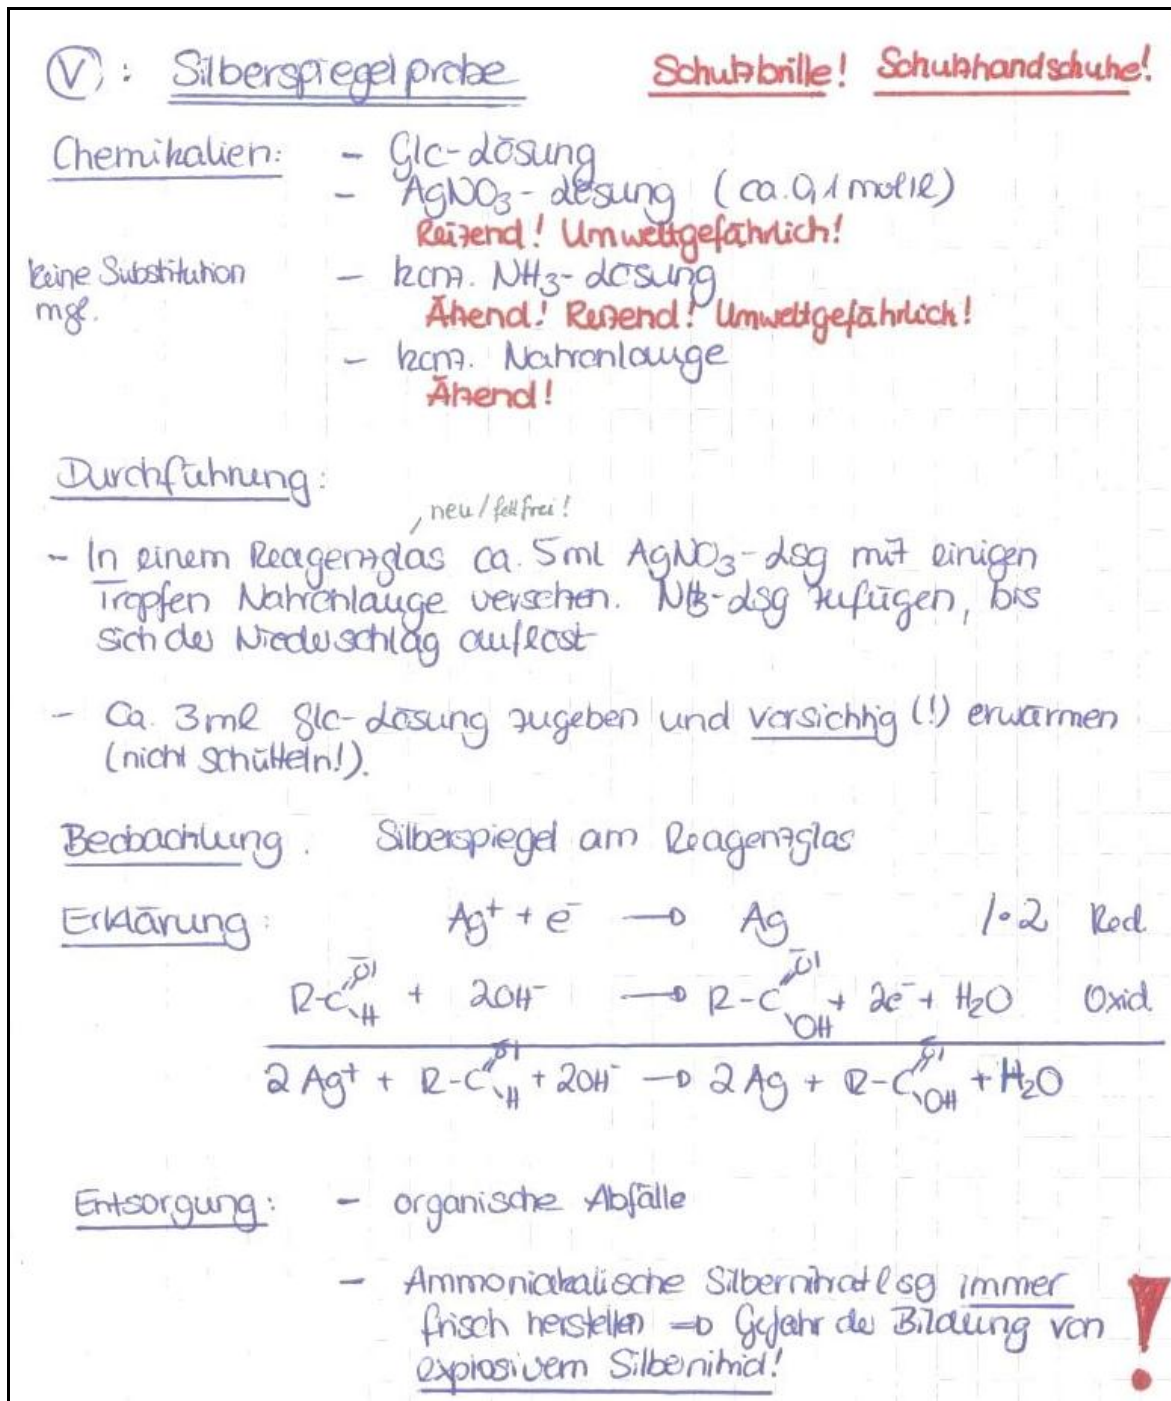 V: Silberspiegelprobe Schutzbrille! Schutzhandschuhe!
Chemikalien: - Glc-Lösung
- AgNO₃-Lösung (ca. 0,1 mol/l)
Reizend! Umweltgefährlich!
keine Substitution - konz. NH₃-Lösung
mgl. Ätzend! Reizend! Umweltgefährlich!
- konz. Natronlauge
Ätzend!
Durchführung:
, neu/fettfrei!
- In einem Reagenzglas ca. 5ml AgNO₃-Lsg mit einigen
Tropfen Natronlauge versehen. NH₃-Lsg zufügen, bis
sich der Niederschlag auflöst
- Ca. 3ml Glc-Lösung zugeben und vorsichtig (!) erwärmen
(nicht schütteln!).
Beobachtung: Silberspiegel am Reagenzglas
Erklärung: Ag⁺ + e⁻ → Ag /·2 Red.
R-C(=O)H + 2OH⁻ → R-C(=O)OH + 2e⁻ + H₂O Oxid.
2 Ag⁺ + R-C(=O)H + 2OH⁻ → 2 Ag + R-C(=O)OH + H₂O
Entsorgung: - organische Abfälle
- Ammoniakalische Silbernitratlsg immer
frisch herstellen ⇒ Gefahr der Bildung von
explosivem Silbernitrid! !